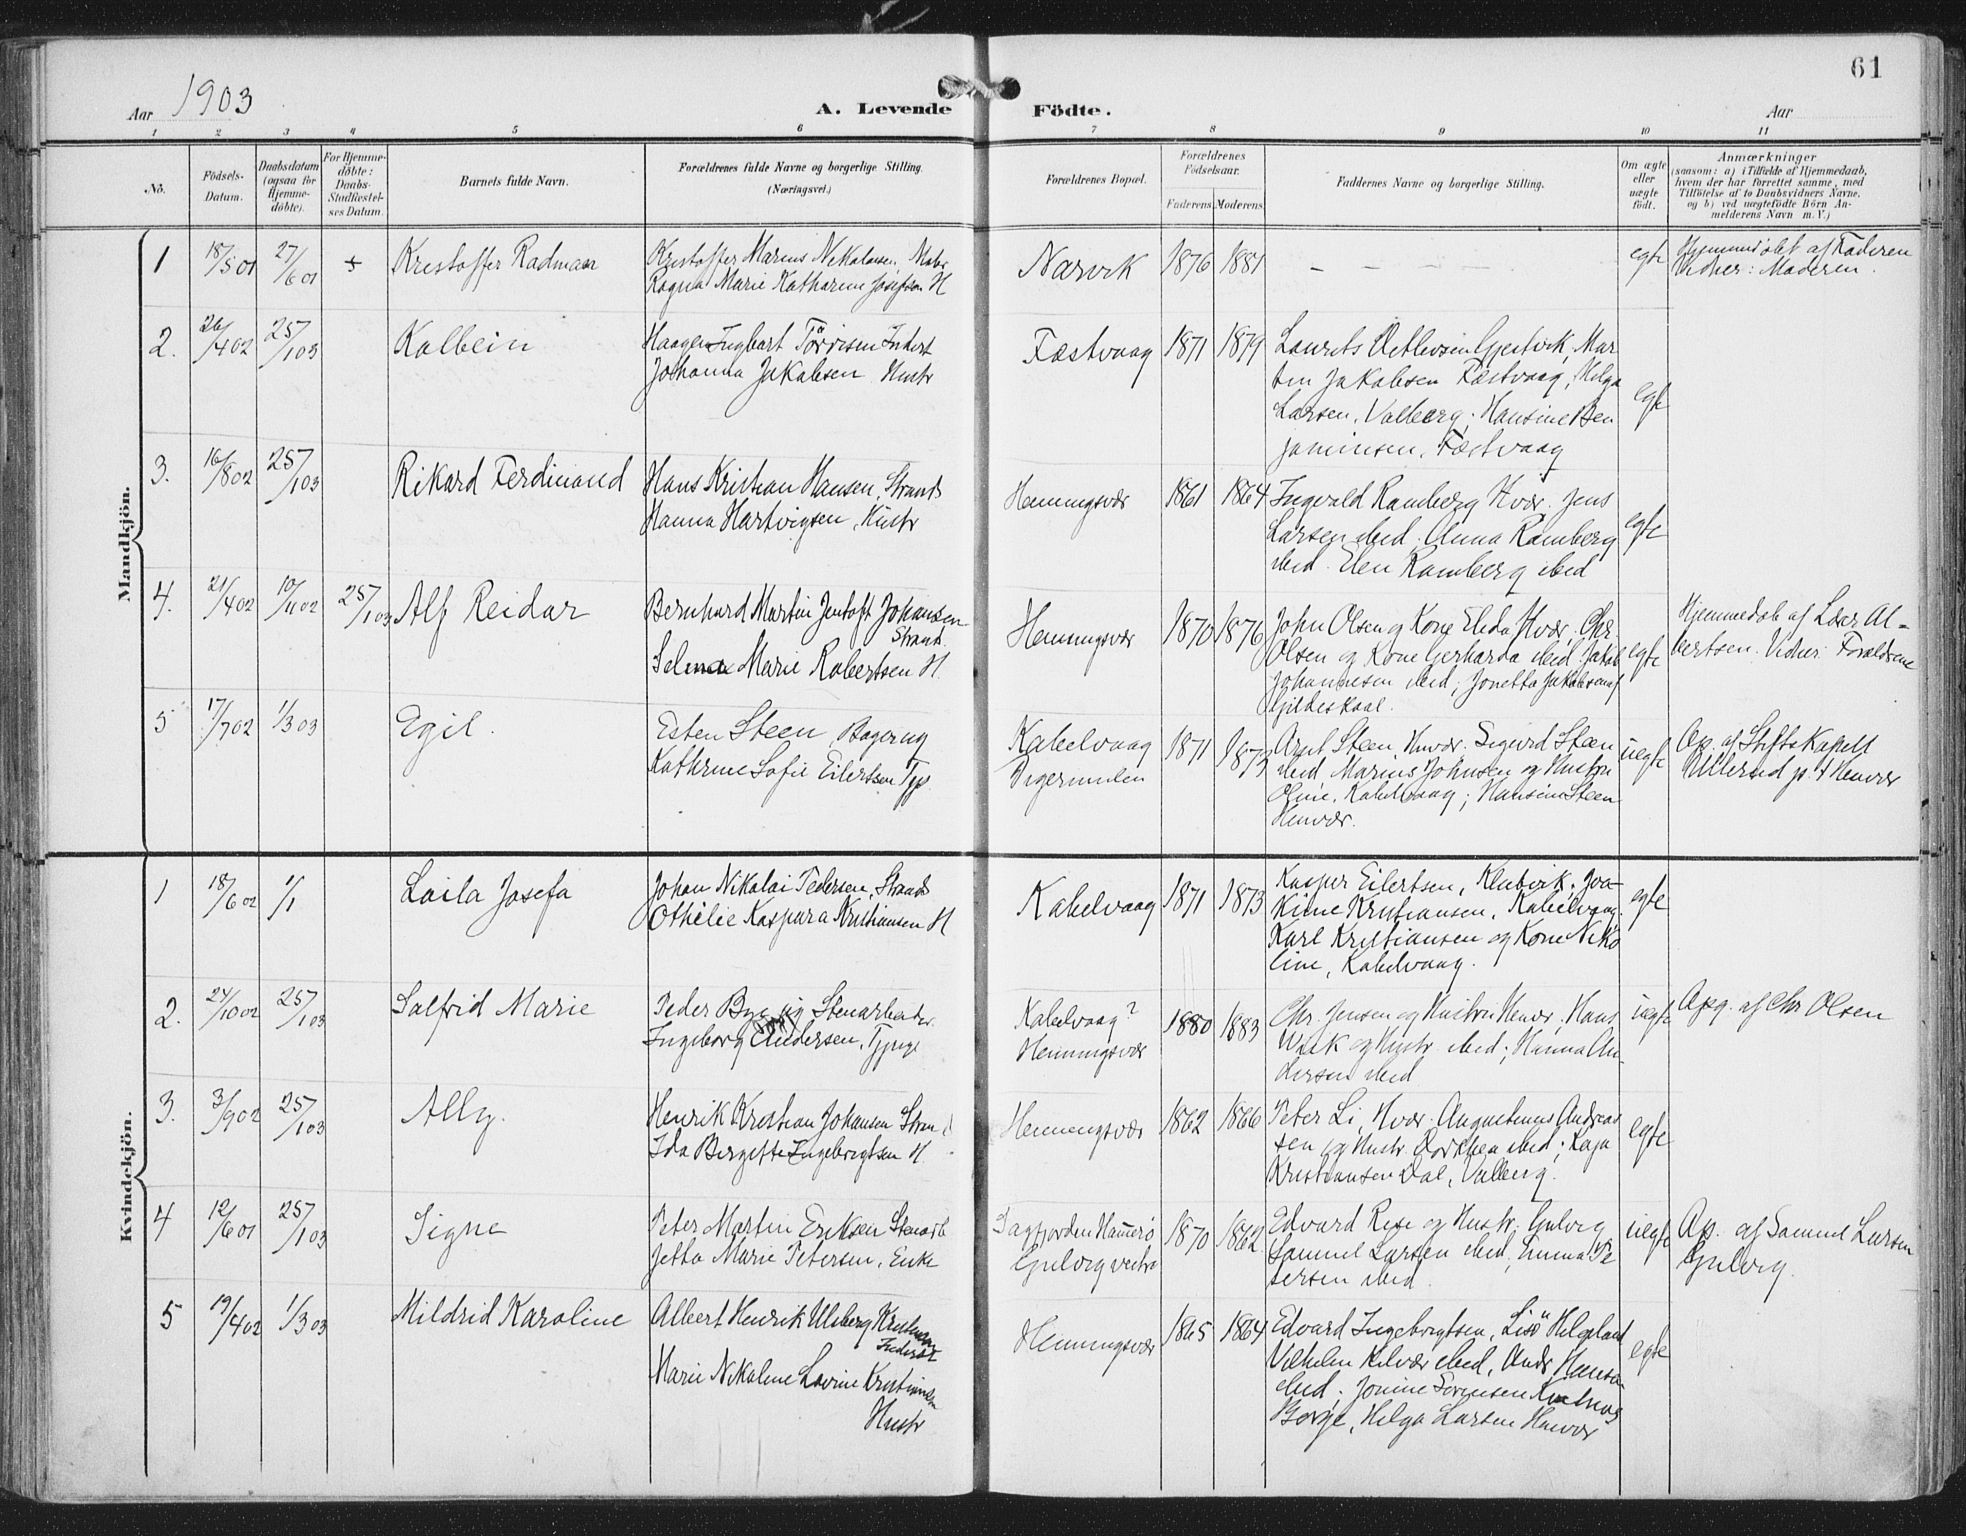 61
Aar 1903
A. Levende Födte.
Aar
1 2 3 4 5 6 7 8 9 10 11
No.
Födsels-Datum.
Daabsdatum (ogsaa for Hjemme-döbte).
For Hjemme-döbte: Daabs-Stadfæstel-ses Datum.
Barnets fulde Navn.
Forældrenes fulde Navne og borgerlige Stilling. (Næringsvei.)
Forældrenes Bopæl.
Forældrenes Födselsaar.
Faderens. Moderens.
Faddernes Navne og borgerlige Stilling.
Om ægte eller uægte födt.
Anmærkninger
(saasom: a) i Tilfælde af Hjemmedaab,
hvem der har forrettet samme, med
Tilföielse af to Daabsvidners Navne.
og b) ved uægtefödte Börn An-
melderens Navn m. V.)
Mandkjön.
1 18/5 01 27/6 01 + Kristoffer Radman
Kristoffer Marius Nikolaisen
Ragna Marie Katharine Josefsen H
Narvik 1876 1881 – – – –
egte
Hjemmedöbt af Faderen
Vidner: Moderen.
2. 26/4 02 25/1 03 Kolbein
Haagen Ingbart Törrisen Inderst
Johanna Jakobsen Hustr
Fæstvaag 1871 1879
Laurits Detlevsen Gjestvik, Mar
tin Jakobsen Fæstvaag, Helga
Larsen, Valberg; Hansine Ben
jaminsen, Fæstvaag
egte
3. 16/8 02 25/1 03 Rikard Ferdinand
Hans Kristian Hansen, Strands
Hanna Hartvigsen, Hustr
Henningsvær 1861 1864
Ingvald Ramberg Hvær. Jens
Larsen ibid; Anna Ramberg
ibid. Elen Ramberg ibid
egte
4. 21/4 02 10/11 02 25/1 03 Alf Reidar
Bernhard Martin Jentoft Johansen
Strand.
Selma Marie Robertsen H.
Henningsvær 1870 1876
John Olsen og Kone Elida Hvær, Chr.
Olsen og Kone Gerharda ibid. Jakob
Johannesen ibid; Jonetta Jakobsen af
Gildeskaal.
egte
Hjemmedöb af Lærer Al-
bertsen. Vidner: Forældrene
5 17/7 02 1/3 03 Egil.
Esten Steen, Bagersv
Kathrine Sofie Eilertsen Tj.
Kabelvaag
Digermulen
1871 1873
Arnt Steen, Henvær. Sigurd Steen
ibid, Marius Johnsen og Hustru
Oline, Kabelvaag; Hansine Steen
Henvær.
uegte
Op. af Stiftskapell
Ullerud p. t Henvær
Kvindekjön.
1 18/6 02 1/1 Laila Josefa
Johan Nikolai Pedersen, Strands
Othelie Kaspara Kristiansen H
Kabelvaag 1871 1873
Kasper Eilertsen, Klubvik. Joa-
kime Kristiansen, Kabelvaag,
Karl Kristiansen og Kone Niko
line, Kabelvaag.
egte
2. 24/10 02 25/1 03 Solfrid Marie
Peder Bye, Stenarbeider.
Ingeborg Andersen, Tjpige
Kabelvaag?
Henningsvær
1880 1883
Chr. Jensen og Hustru Henvær, Hans
Wiik og Hustr ibid; Hanna An-
dersen ibid
uegte
Opg. af Chr Olsen
3. 3/9 02 25/1 03 Ally.
Henrik Kristian Johansen Strand
Ida Bergette Ingebrigtsen H.
Henningsvær 1862 1866
Peter Li, Hvær. Augustinus Andreas
sen og Hustr Dorthea ibid; Kaja
Kristiansen Dal, Valberg.
egte
4 12/6 01 25/1 03 Signe
Peter Martin Eriksen Stenarb
Jetta Marie Petersen, Enke
Sagfjorden Hamerö
Gulvig vestre
1870 1862
Edvard Rise og Hustr. Gulvig
Samuel Larsen ibid, Emma Pe
tersen ibid.
uegte
Op. af Samuel Larsen
Gulvig.
5 19/4 02 1/3 03 Mildrid Karoline
Albert Henrik Ulsberg Kristiansen
Inderst
Marie Nikoline Lovise Kristiansen
Hustr
Henningsvær 1865 1864
Edvard Ingebrigtsen, Lisö Helgeland
Vilhelm Kilvær ibid, Andr Hansen
ibid; Jonine Sörensen
Borge, Helga Larsen Henvær
egte